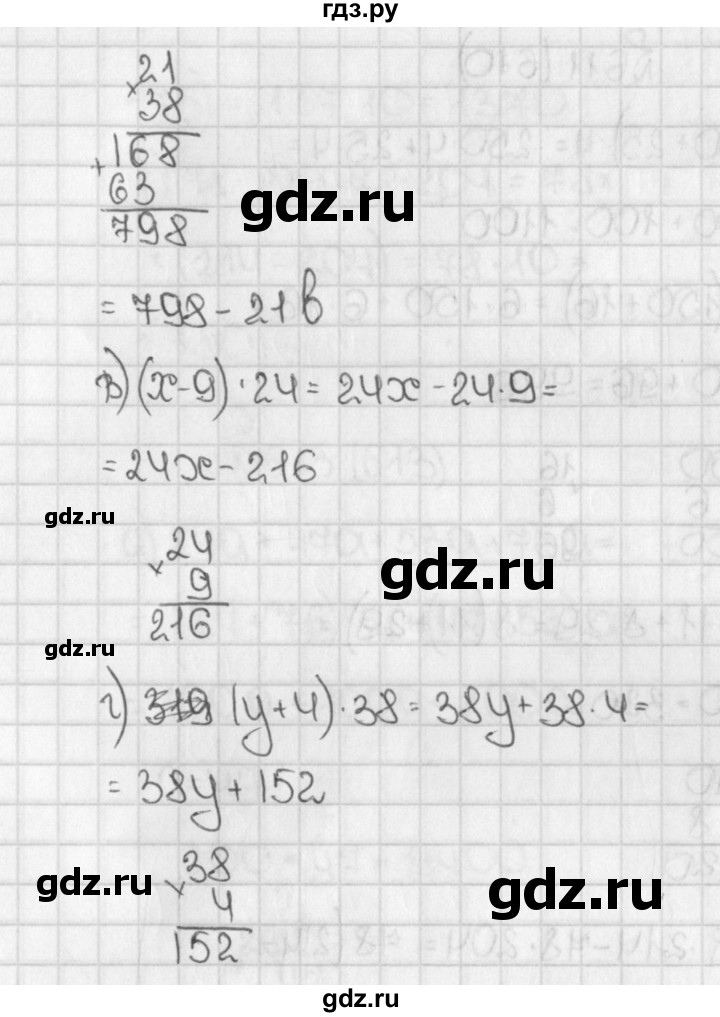 гдз.ру
21
× 38
168
+ 63
798
gdz.ru
= 798 - 21в
в) (x-9)·24 = 24x - 24·9 =
= 24x - 216
gdz.ru
24
× 9
216
gdz.ru
gdz.ru
г) (y+4)·38 = 38y + 38·4 =
= 38y + 152
38
× 4
152
gdz.ru
gdz.ru
gdz.ru